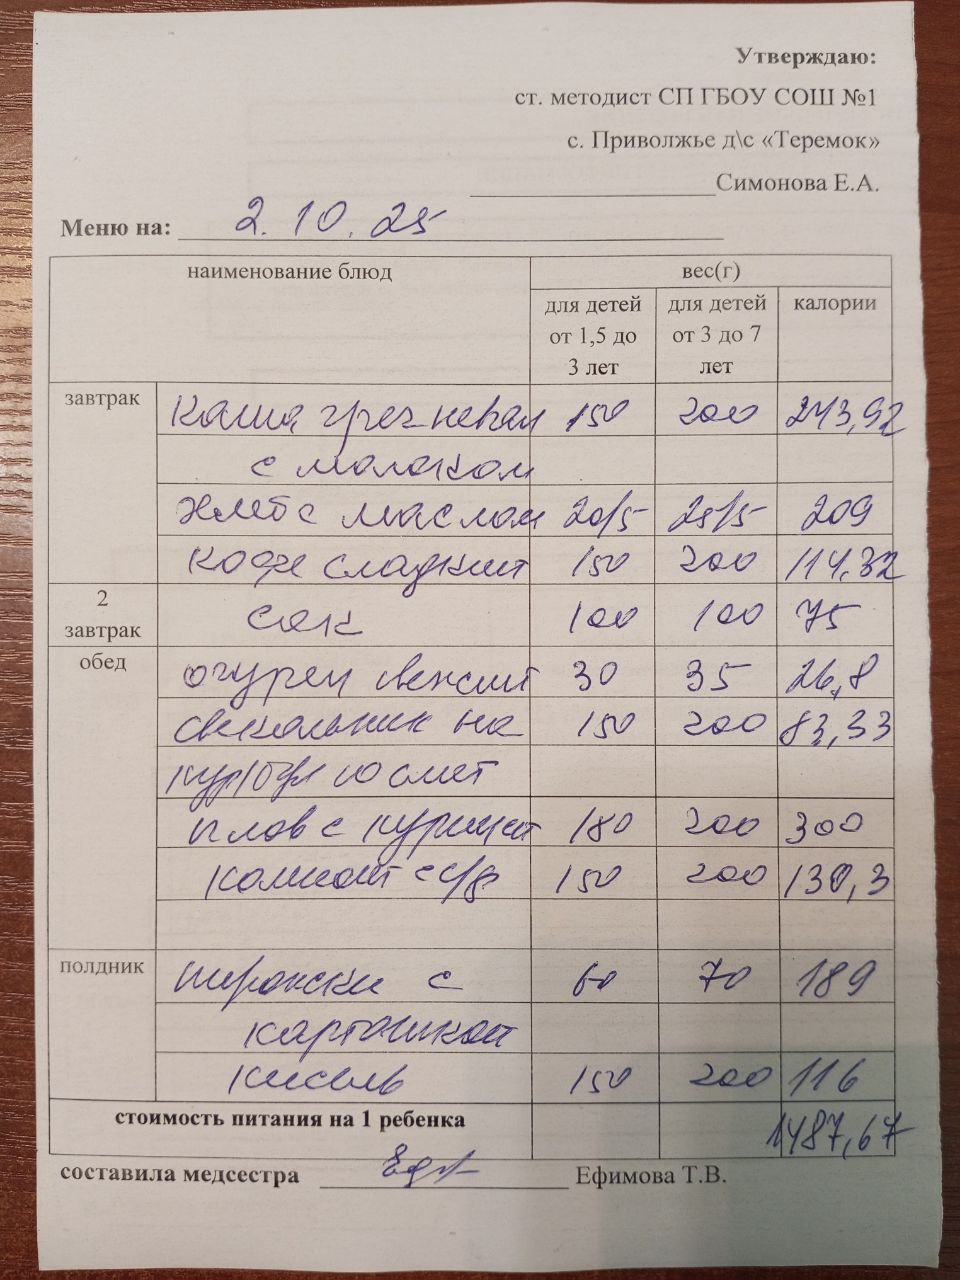 Утверждаю:
ст. методист СП ГБОУ СОШ №1
с. Приволжье д\с «Теремок»
Симонова Е.А.
Меню на: 2.10.25
наименование блюд вес(г)
для детей от 1,5 до 3 лет для детей от 3 до 7 лет калории
завтрак Каша гречневая 150 200 243,92
с молоком
хлеб с маслом 20/5 25/5 209
кофе сладкий 150 200 114,32
2 завтрак сок 100 100 75
обед огурец свежий 30 35 26,8
свекольник на 150 200 83,33
кур/бул со смет
плов с курицей 180 200 300
компот с с/ф 150 200 130,3
полдник пирожки с 60 70 189
картошкой
кисель 150 200 116
стоимость питания на 1 ребенка 1487,67
составила медсестра Ефимова Т.В.